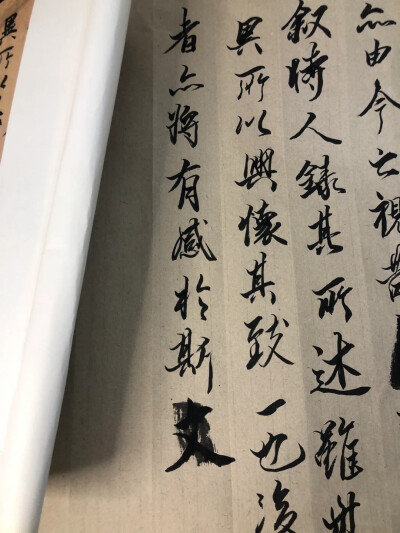 亦由今之視昔
敘時人錄其所述雖世
異所以興懷其致一也後
者亦將有感於斯文
異所以